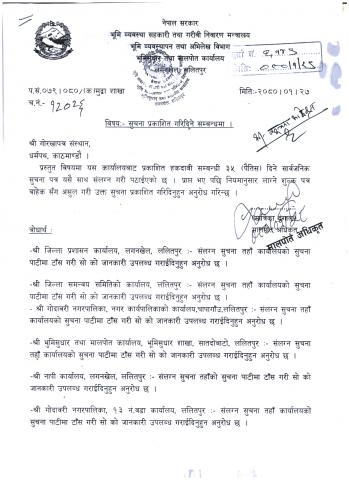 नेपाल सरकार
भूमि व्यवस्था सहकारी तथा गरीबी निवारण मन्त्रालय
भूमि व्यवस्थापन तथा अभिलेख विभाग
भूमिसुधार तथा मालपोत कार्यालय
लगनखेल, ललितपुर
प.सं.०७९।०८०/१क।मुद्दा शाखा
मिति:-२०८०।०१।२७
च.नं.-
विषय:- सूचना प्रकाशित गरिदिने सम्बन्धमा ।
श्री गोरखापत्र संस्थान,
धर्मपथ, काठमाण्डौं ।
प्रस्तुत विषयमा यस कार्यालयबाट प्रकाशित हकदावी सम्बन्धी ३५ (पैंतिस) दिने सार्वजनिक
सूचना पत्र यसै साथ संलग्न गरी पठाईएको छ । प्राप्त भए पछि नियमानुसार लाग्ने शुल्क पत्र
बाहेक सँग असुल गरी उक्त सूचना प्रकाशित गरिदिनुहुन अनुरोध गरिन्छ ।
मालपोत अधिकृत
बोधार्थ :
-श्री जिल्ला प्रशासन कार्यालय, लगनखेल, ललितपुर :- संलग्न सूचना तहाँ कार्यालयको सूचना
पाटीमा टाँस गरी सो को जानकारी उपलब्ध गराईदिनुहुन अनुरोध छ ।
-श्री जिल्ला समन्वय समितिको कार्यालय, ललितपुर :- संलग्न सूचना तहाँ कार्यालयको सूचना
पाटीमा टाँस गरी सो को जानकारी उपलब्ध गराईदिनुहुन अनुरोध छ ।
- श्री गोदावरी नगरपालिका, नगर कार्यपालिकाको कार्यालय,चापागाँउ,ललितपुर :- संलग्न सूचना तहाँ
कार्यालयको सूचना पाटीमा टाँस गरी सो को जानकारी उपलब्ध गराईदिनुहुन अनुरोध छ ।
-श्री भूमिसुधार तथा मालपोत कार्यालय, भूमिसुधार शाखा, सातदोबाटो, ललितपुर :- संलग्न सूचना
तहाँ कार्यालयको सूचना पाटीमा टाँस गरी सो को जानकारी उपलब्ध गराईदिनुहुन अनुरोध छ ।
-श्री नापी कार्यालय, लगनखेल, ललितपुर :- संलग्न सूचना तहाँको सूचना पाटीमा टाँस गरी सो को
जानकारी उपलब्ध गराईदिनुहुन अनुरोध छ ।
-श्री गोदावरी नगरपालिका, १३ नं.वडा कार्यालय, ललितपुर :- संलग्न सूचना तहाँ कार्यालयको
सूचना पाटीमा टाँस गरी सो को जानकारी उपलब्ध गराईदिनुहुन अनुरोध छ ।